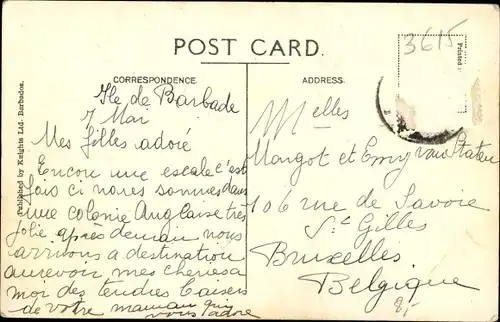 POST CARD.
3615
Printed
CORRESPONDENCE.
ADDRESS.
Published by Knights Ltd. Barbados.
Ile de Barbade
7 Mai
Mes filles adoré
Encore une escale c'est
fois ci nous sommes dans
une colonie Anglaise tres
jolie après demain nous
arrivons a destination
aurevoir mes cheries a
moi des tendres baisers
de votre maman qui
vous adore
Melles
Margot et Emy van Straten
106 rue de Savoie
St Gilles
Bruxelles
Belgique